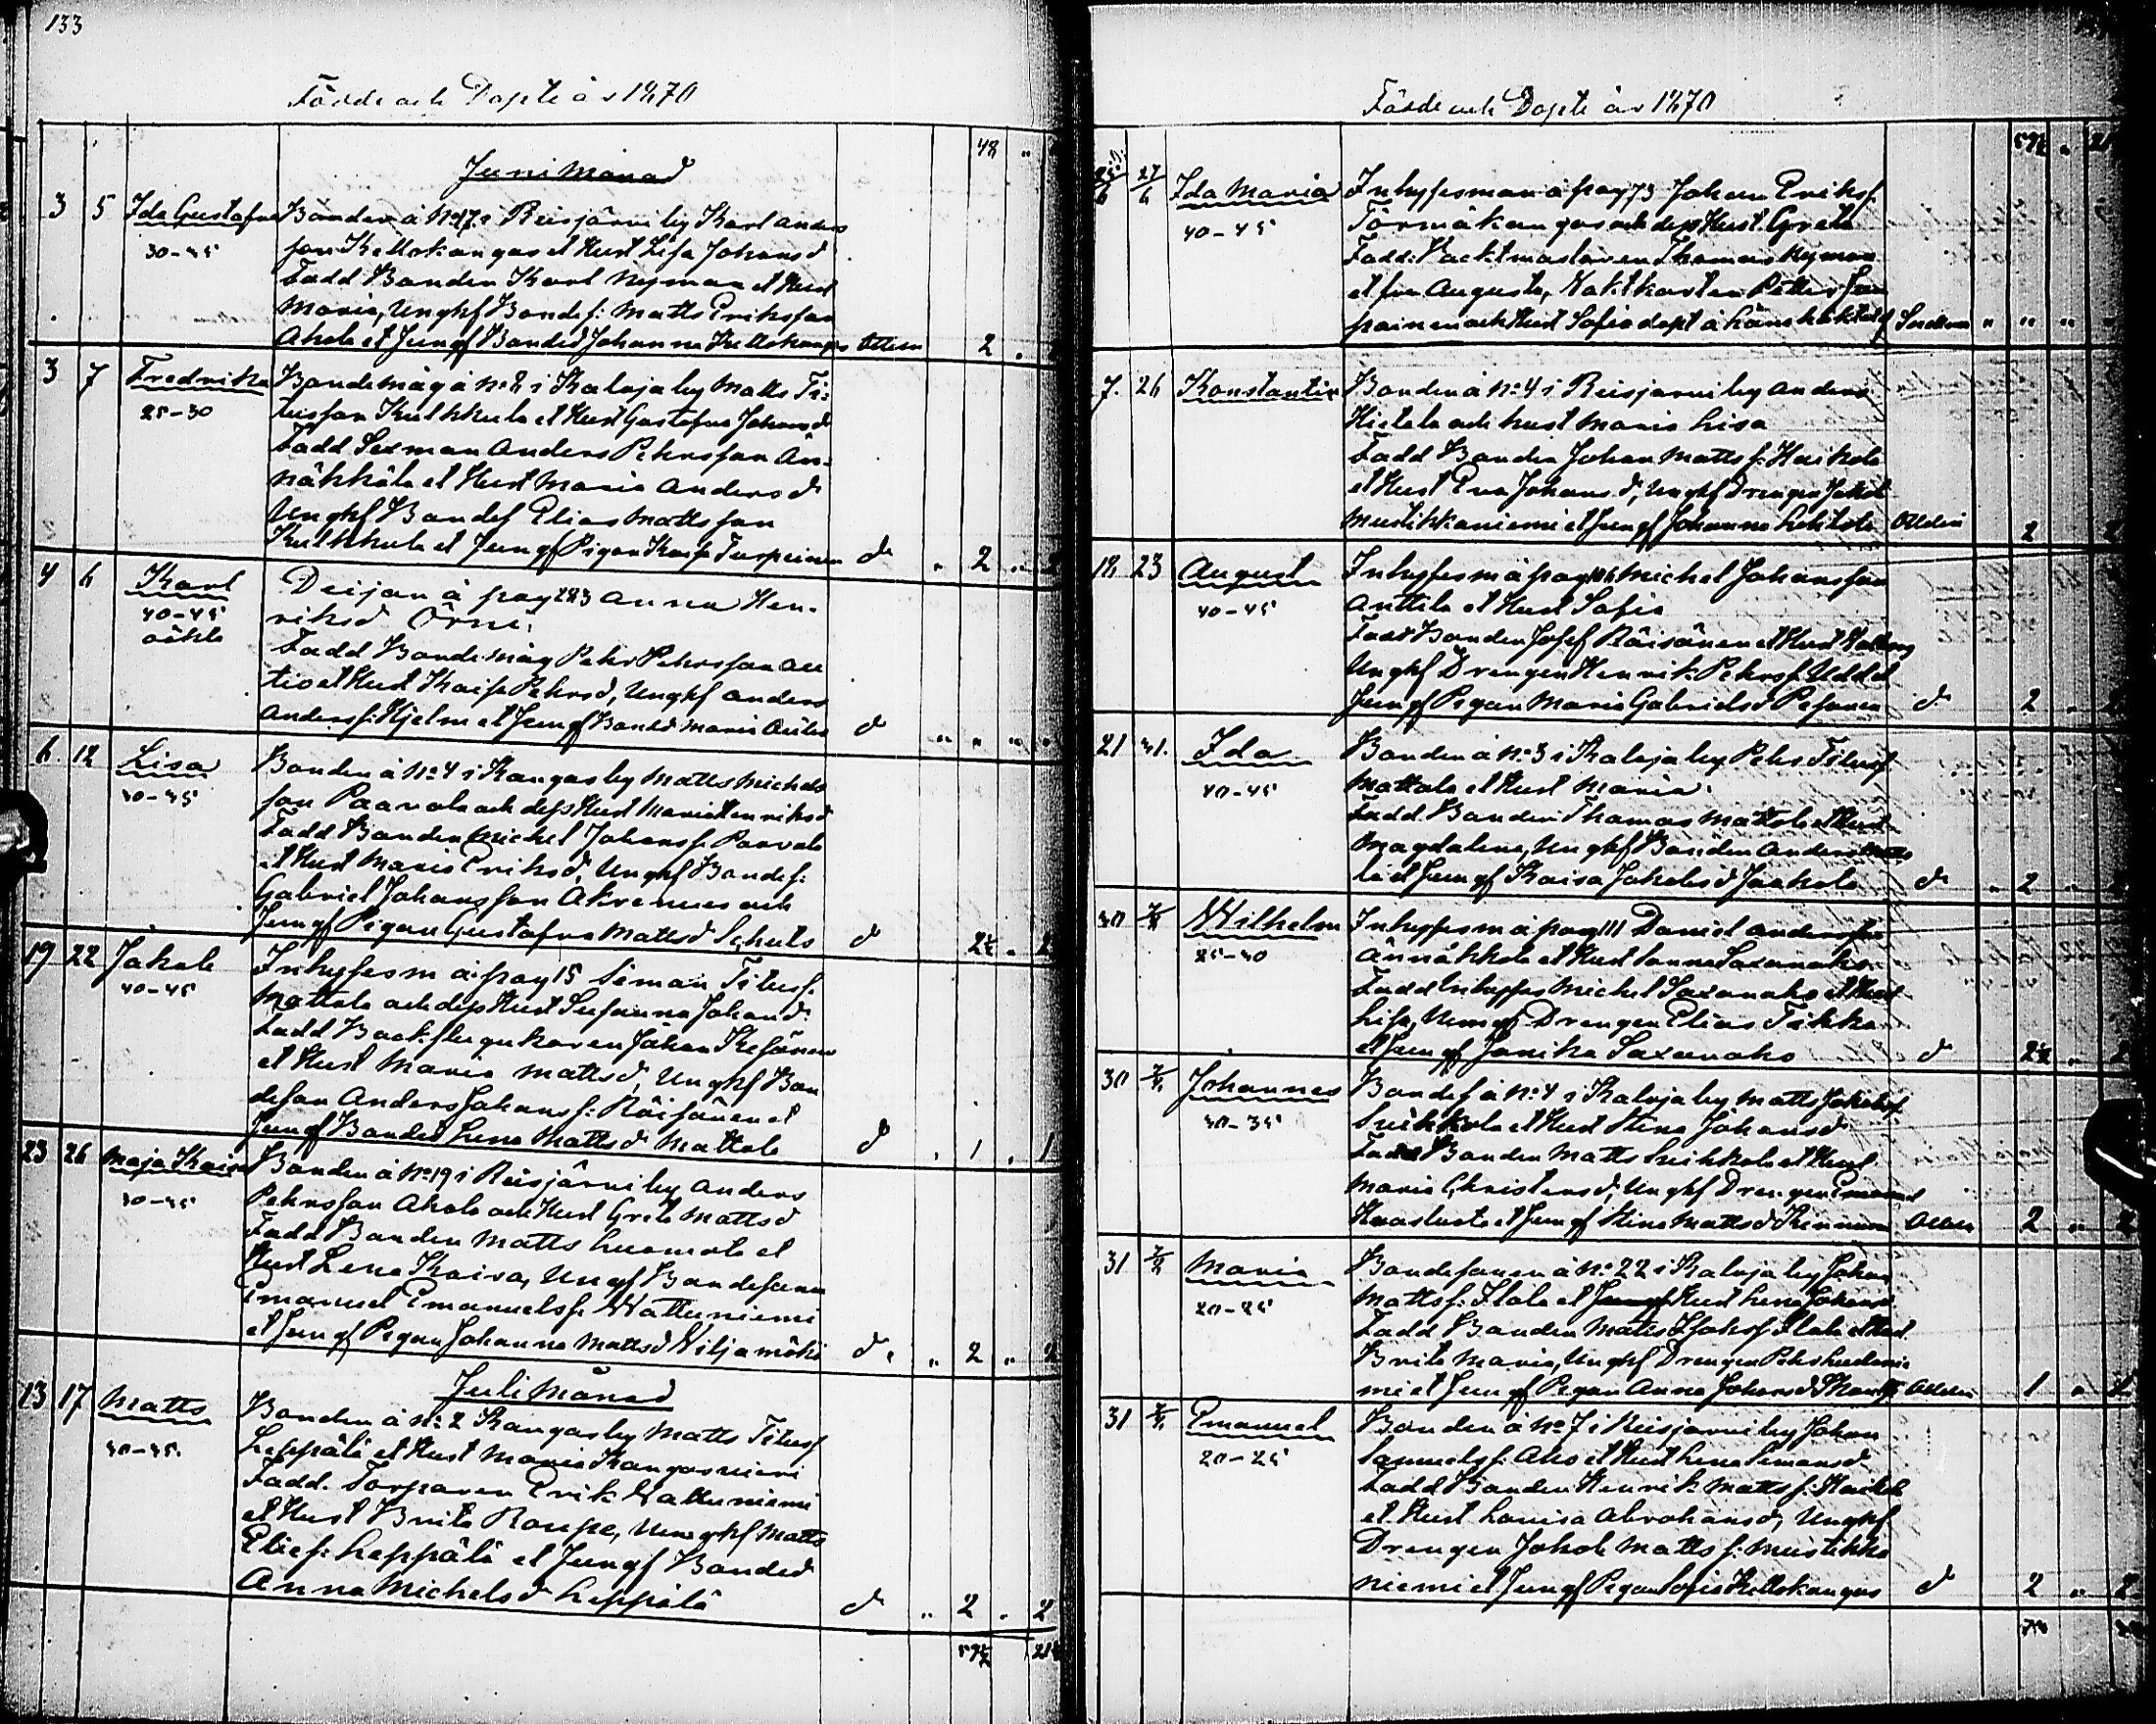 133
Födde och Döpte år 1870
48 "
Juni Månad
3 5 Ida Gustafva Bonden å No 17 i Reisjärvi by Karl Anders
30-35 son Kettokangas et Hust Lisa Johansd
Fadd Bonden Karl Nyman et Hust
Maria, Unghf Bondes: Matts Eriksson
Ahola et Jungf Bonded Johanna Kettokangas 2 .
3 7 Fredrika Bondemåg å No 8 i Kalaja by Matts Ti:
25-30 tusson Kulkkula et Hust Gustafva Johansd
Fadd Sexman Anders Pehrsson Än-
näkkälä et Hust Maria Andersd
Unghf Bondes Elias Mattsson
Kulkkula et Jungf Pigan Kaisa Turpeinen do " 2 " 2
4 6 Karl Deijan å pag 283 Anna Hen-
40-45 riksd Örni.
oäkta Fadd Bondemåg Pehr Pehrsson Au
tio et Hust Kaisa Pehrsd, Unghf Anders
Anderss: Hjelm et Jungf Bonded Maria Autio d " " " "
6. 12 Lisa Bonden å No 4 i Kangas by Matts Michels
30-35 son Paavola och dess Hust Maria Henriksd
Fadd Bonden Michel Johanss. Paavola
et Hust Maria Eriksd, Unghf Bondes:
Gabriel Johansson Akrenius och
Jungf Pigan Gustafva Mattsd Schuts d 2½ . 2
19 22 Jakob Inhysesm å pag 15 Siman Tituss.
40-45 Mattola och dess Hust Susanna Johansd
Fadd Backstugukaren Johan Kesänen
et Hust Maria Mattsd, Unghf Bon
deson Anders Johanss: Räisänen et
Jungf Bonded Lena Mattsd Mattola d . 1 . 1
23 26 Maja Kaisa Bonden å No 19 i Reisjärvi by Anders
30-35 Pehrsson Ahola och Hust Greta Mattsd
Fadd Bonden Matts Luomala et
Hust Lena Kaisa, Ungf Bondesonen
Emanuel Emanuelss. Wattuniemi
et Jungf Pigan Johanna Mattsd Wiljamäki d. " 2 " 2
Juli Månad
13 17 Matts Bonden å No 2 Kangas by Matts Tituss
30-35. Leppälä et Hust Maria Kangasniemi
Fadd. Torparen Erik Wattuniemi
et Hust Brita Roupe, Unghf Matts
Elies: Leppälä et Jungf Bonded
Anna Michelsd Leppälä d " 2 . 2
59½ 21½
Födde och Döpte år 1870
59½ " 21
25/6 27/6 Ida Maria Inhysesman å pag 73 Johan Erikss.
40-45 Törmäkangas och dess Hust. Greta
Fadd: Vacktmästaren Thomas Nyman
et fru Augusta, Vaktkarlen Petter Jam
painen och Hust Sofia döpt å länehäktet " " " "
7. 26 Konstantin Bonden å No 4 i Reisjärvi by Anders
Hietala och hust Maria Lisa
Fadd Bonden Johan Mattss: Haikola
et Hust Eva Johansd, Unghf Drengen Jakob
Mustikkaniemi et Jungf Johanna 2 2
18 23 August Inhysesm å pag 106 Michel Johansson
40-45 Anttila et Hust Sofia
Fadd Bonden Josef Räisänen et Hust
Unghf Drengen Henrik Pehrss. et
Jungf Pigan Maria Gabrielsd Pesonen d 2 . 2
21 31. Ida Bonden å No 3 i Kalaja by Pehr Tituss
40-45 Mattola et Hust Maria.
Fadd Bonden Thomas Mattola et Hust
Magdalena, Unghf Bonden Anders
et Jungf Kaisa Jakobsd Jaakola do " 2 . 2
30 7/8 Wilhelm Inhysesm å pag 111 Daniel Andersson
25-30 Ännäkkälä et Hust Sanna Saxanaho
Fadd Inhyses Michel Saxanaho et Hust
Lisa, Unghf Drengen Elias Tikka
et Jungf Janika Saxanaho d 2½ " 2
30 7/8 Johannes Bondes å No 4 i Kalaja by Matts Jakobs
30-35 Suikkola et Hust Stina Johansd
Fadd Bonden Matts Suikkola et Hust
Maria Christersd, Unghf Drengen Emanuel
et Jungf Stina Mattsd Kinnunen 2 " 2
31 7/8 Maria Bondesonen å No 22 i Kalaja by Johan
20-25 Mattss: Ilola et Jungf Hust Lena Johansd
Fadd Bonden Matts Ilola et Hust
Brita Maria, Unghf Drengen Pehr
mi et Jungf Pigan Anna Johansd 1 " 1
31 7/8 Emanuel Bonden å No 7 i Reisjärvi by Johan
20-25 Samuelss: Aho et Hust Lena Simonsd
Fadd Bonden Henrik Mattss: Haikola
et Hust Lovisa Abrahamsd, Unghf
Drengen Jakob Mattss: Mustikka
niemi et Jungf Pigan Sofia Kettokangas d 2 " 2